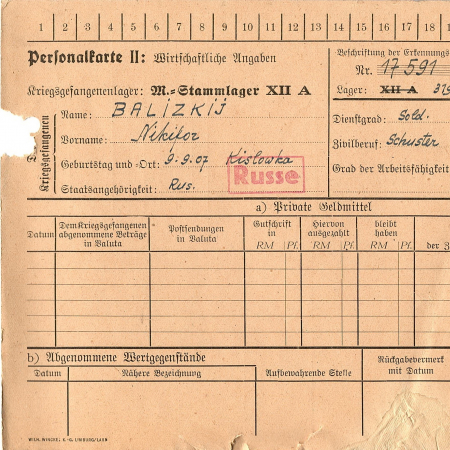 1 2 3 4 5 6 7 8 9 10 11 12 13 14 15 16 17 18
Personalkarte II: Wirtschaftliche Angaben
Beschriftung der Erkennungs
Nr. 17591
Kriegsgefangenenlager: M.-Stammlager XII A
Lager: XII A
Kriegsgefangenen
Name: BALIZKIJ
Vorname: Nikifor
Geburtstag und -Ort: 9.9.07 Kislowka
Staatsangehörigkeit: Rus.
Russe
Dienstgrad: Sold.
Zivilberuf: Schuster
Grad der Arbeitsfähigkeit
a) Private Geldmittel
Datum
Dem Kriegsgefangenen abgenommene Beträge in Valuta
Postsendungen in Valuta
Gutschrift in
RM Pf.
Hiervon ausgezahlt
RM Pf.
bleibt haben
RM Pf.
der
b) Abgenommene Wertgegenstände
Datum
Nähere Bezeichnung
Aufbewahrende Stelle
Rückgabevermerk mit Datum
WILH. WINCKE, K.-G. LIMBURG/LAHN